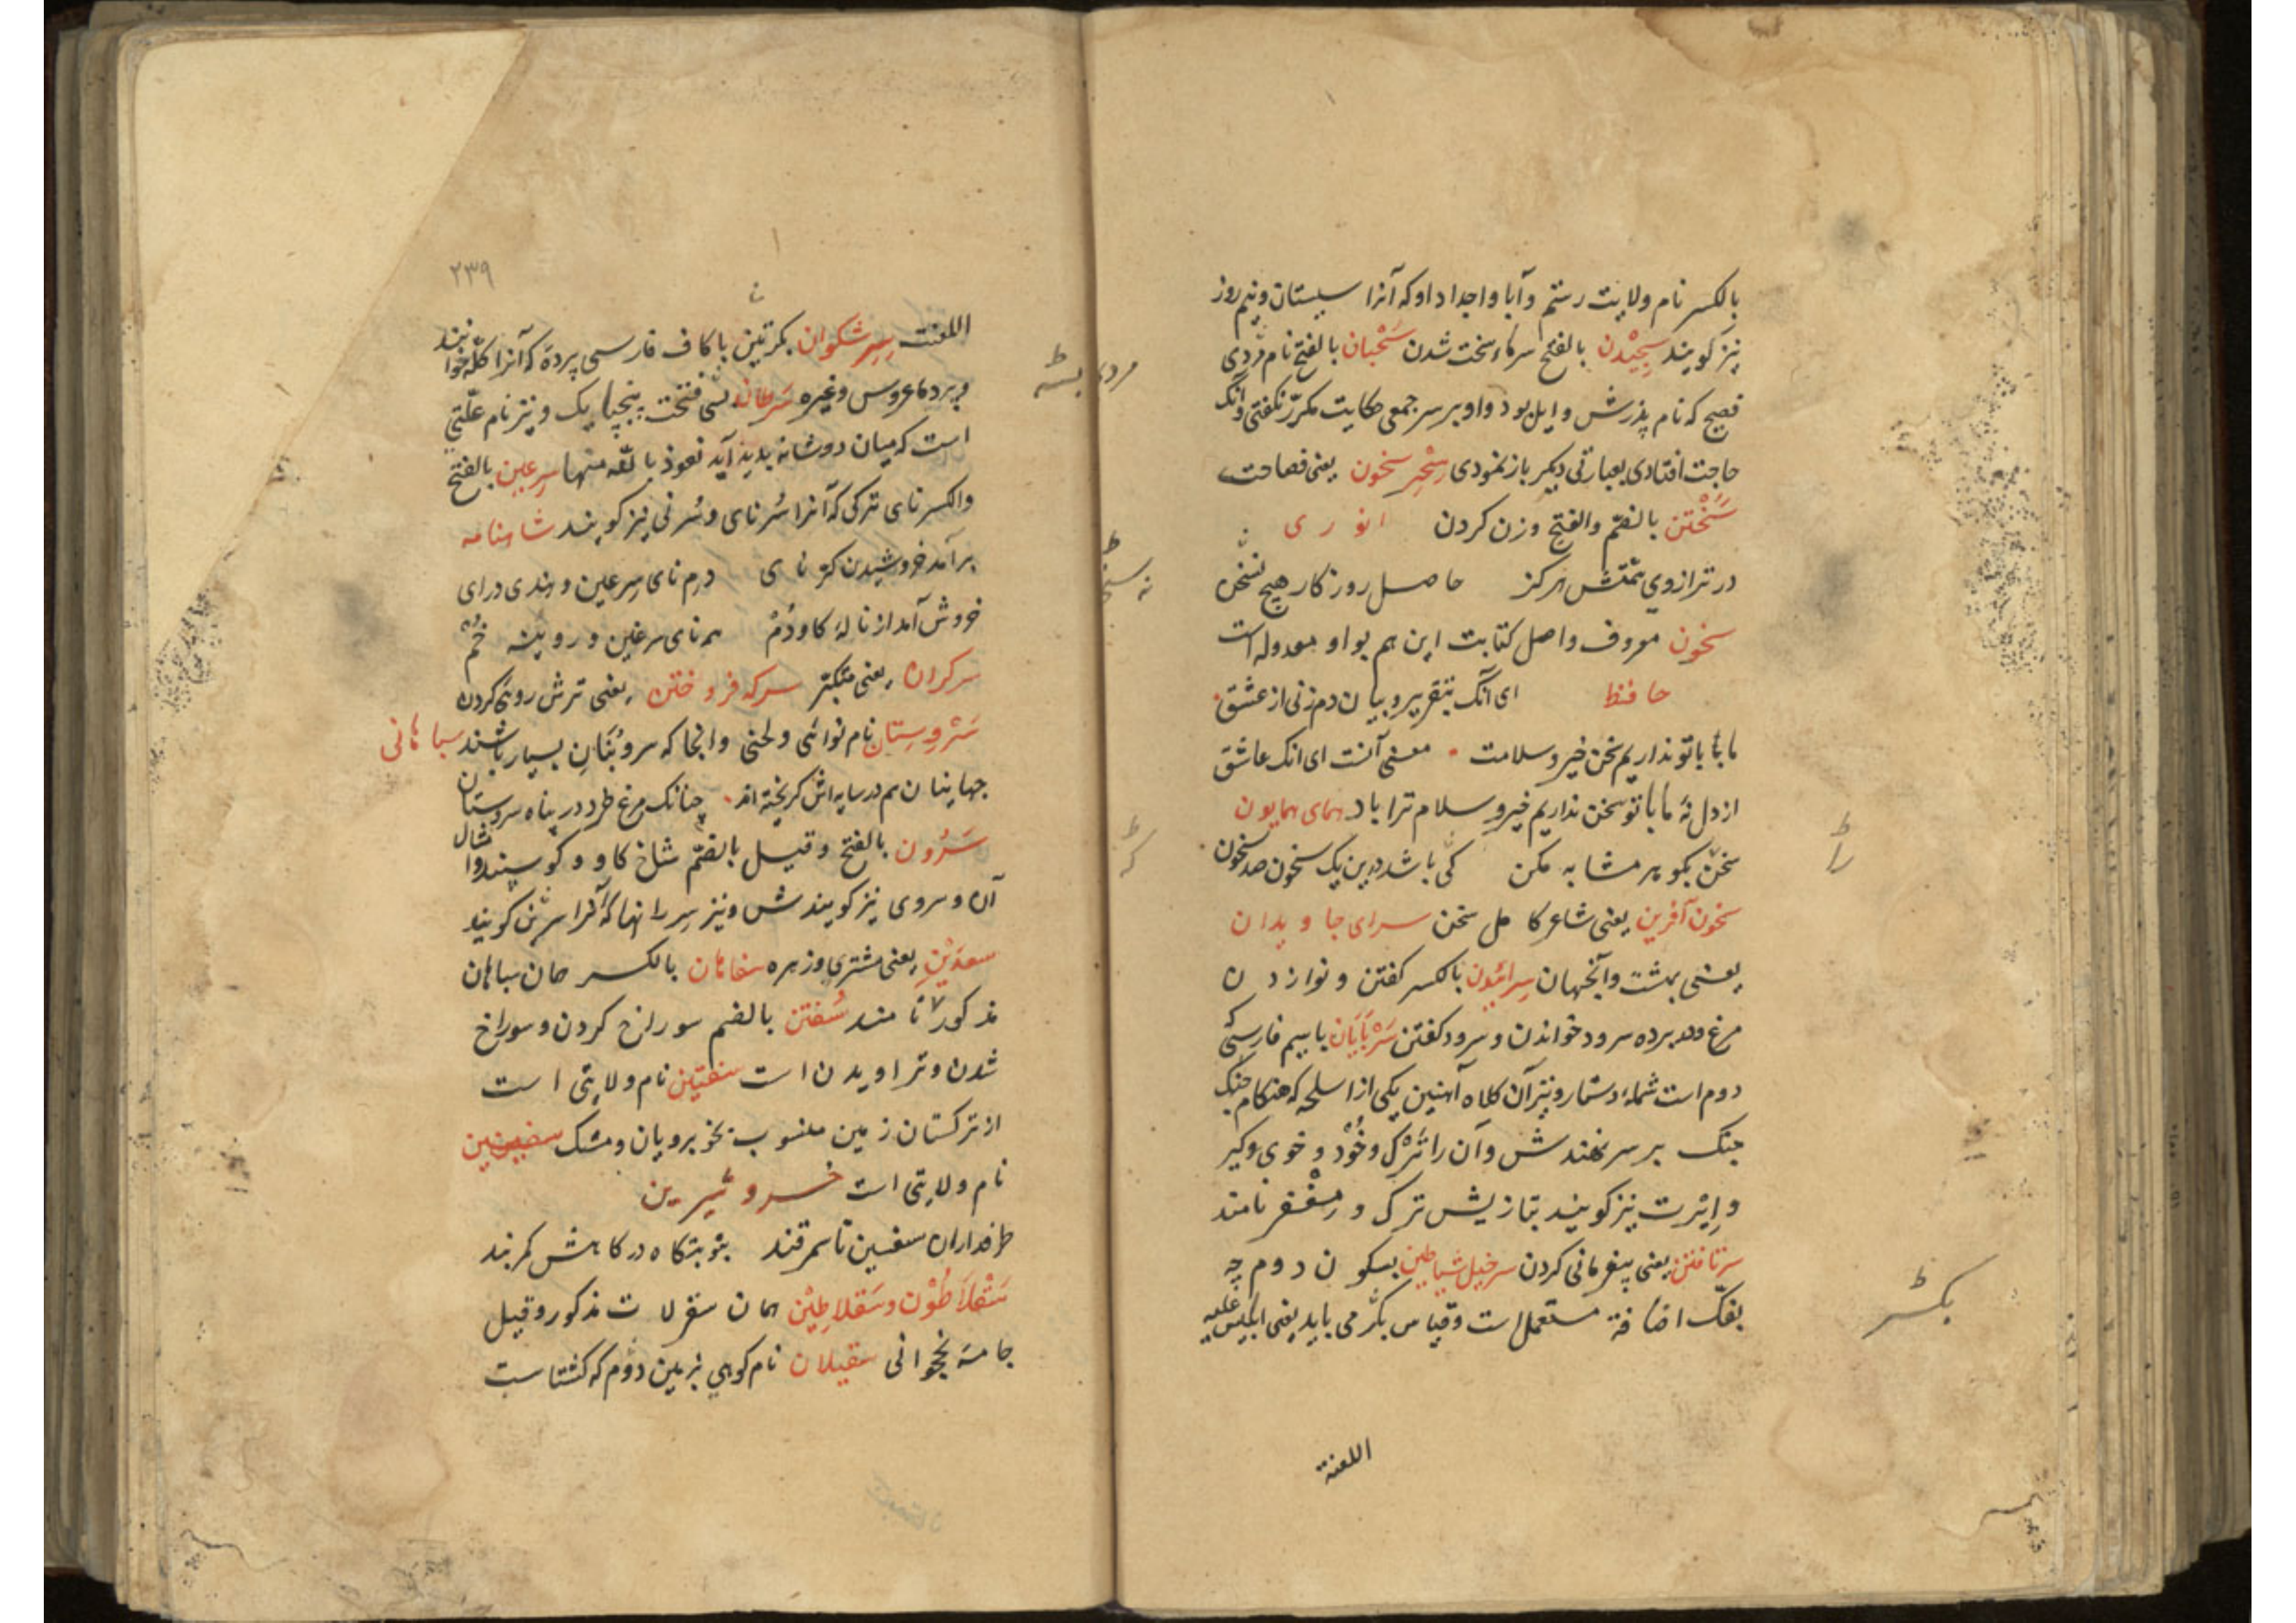 بالکسر نام ولایت رستم وآبا واجداد اوکه آنرا سیستان ونیمروز
نیز کویند سجیدن بالفتح سرماء سخت شدن سَحْبان بالفتح نام مردی
فصیح که نام پذرش وایل بود واو بر سر جمعی حکایت مکرّر نکفتی وانک
حاجت افتادی بعبارتی دیکر باز نمودی سِحْرِ سخون یعنی فصاحت
سَُخْتن بالضمّ والفتح وزن کردن انوری
در ترازوی همّتش هرکز حاصل روزکار هیچ نسخت
سخون معروف واصل کتابت این هم بواو معدوله است
حافظ ای آنک بتقریر وبیان دم زنی از عشق
مابا باتو نداریم سخن خیر وسلامت معنی آنست ای انک عاشق
از دل نهٔ مابا تو سخن نداریم خیر وسلام ترا باد همای همایون
سخن بکو پر مشابه مکن کی باشد درین یک سخون صد سخون
سخون آفرین یعنی شاعر کامل سخن سرای جاویدان
یعنی بهشت وآنجهان سِرائیدن بالکسر کفتن ونوازدن
مرغ وهر پرده سرود خواندن وسرود کفتن سَرْپایَان باسیم فارسی که
دوم است شملهٔ دستار ونیز آن کلاه آهنین یکی از اسلحه که هنکام جنک
جنک بر سر نهندش وآن را تَرْک وخُوْد وخوی وکبر
وایْرت نیز کویند بتازیش ترک ومِغْفر نامند
سرتافتن یعنی بیفرمانی کردن سرخیل شیاطین بسکون دوم چه
بفکّ اضافة مستعمل است وقیاس بکسر می باید یعنی ابلیس علیه
اللعنة
بکسر
۲۳۹
اللعنت سِرِشکوان بکسرتین باکاف فارسی پرده که آنرا کلّه خوانند
وپرده عروس وغیره سَرَطان بسی فتحت پنجپایک ونیز نام علّتی
است که میان دو شانه پدید آید نعوذ بالله منها سرعین بالفتح
والکسر نای ترکی که آنرا سُرنای وسُرنی نیز کویند شاهنامه
برآمد خروشیدن کرّنای دم نای سرعین وهندی درای
خروش آمد از نالهٔ کاودُم هم نای سرغین ورویینه خُم
سرکران یعنی متکبّر سرکه فروختن یعنی ترش رویٔ کردن
سَرْوِستان نام نوائی ولحنی وانجا که سروبُنَانِ بسیار باشند سباهانی
جهانیان هم در سایه اش کریخته اند چنانک مرغ طرد در پناه سروستان
سَرُون بالفتح وقیل بالضمّ شاخ کاو وکوسپند وامثال
آن وسروی نیز کویندش ونیز سررانها که آنرا سرین کویند
سعدَیْن یعنی مشتری وزهره سفاهان بالکسر همان سباهان
مذکور نامند سُفتن بالضم سوراخ کردن وسوراخ
شدن وتراویدن است سفتین نام ولایتی است
از ترکستان زمین منسوب بخوبرویان ومشک سفسین
نام ولایتی است خسرو شیرین
طرفداران سفسین تا سمرقند بنوبتکاه درکاهش کمربند
سَقْلَاطُوْن وسَقلاطِیْن همان سقرلات مذکور وقیل
جامهٔ نخجوانی سقیلان نام کوهی بزمین دوم که کشتاسب